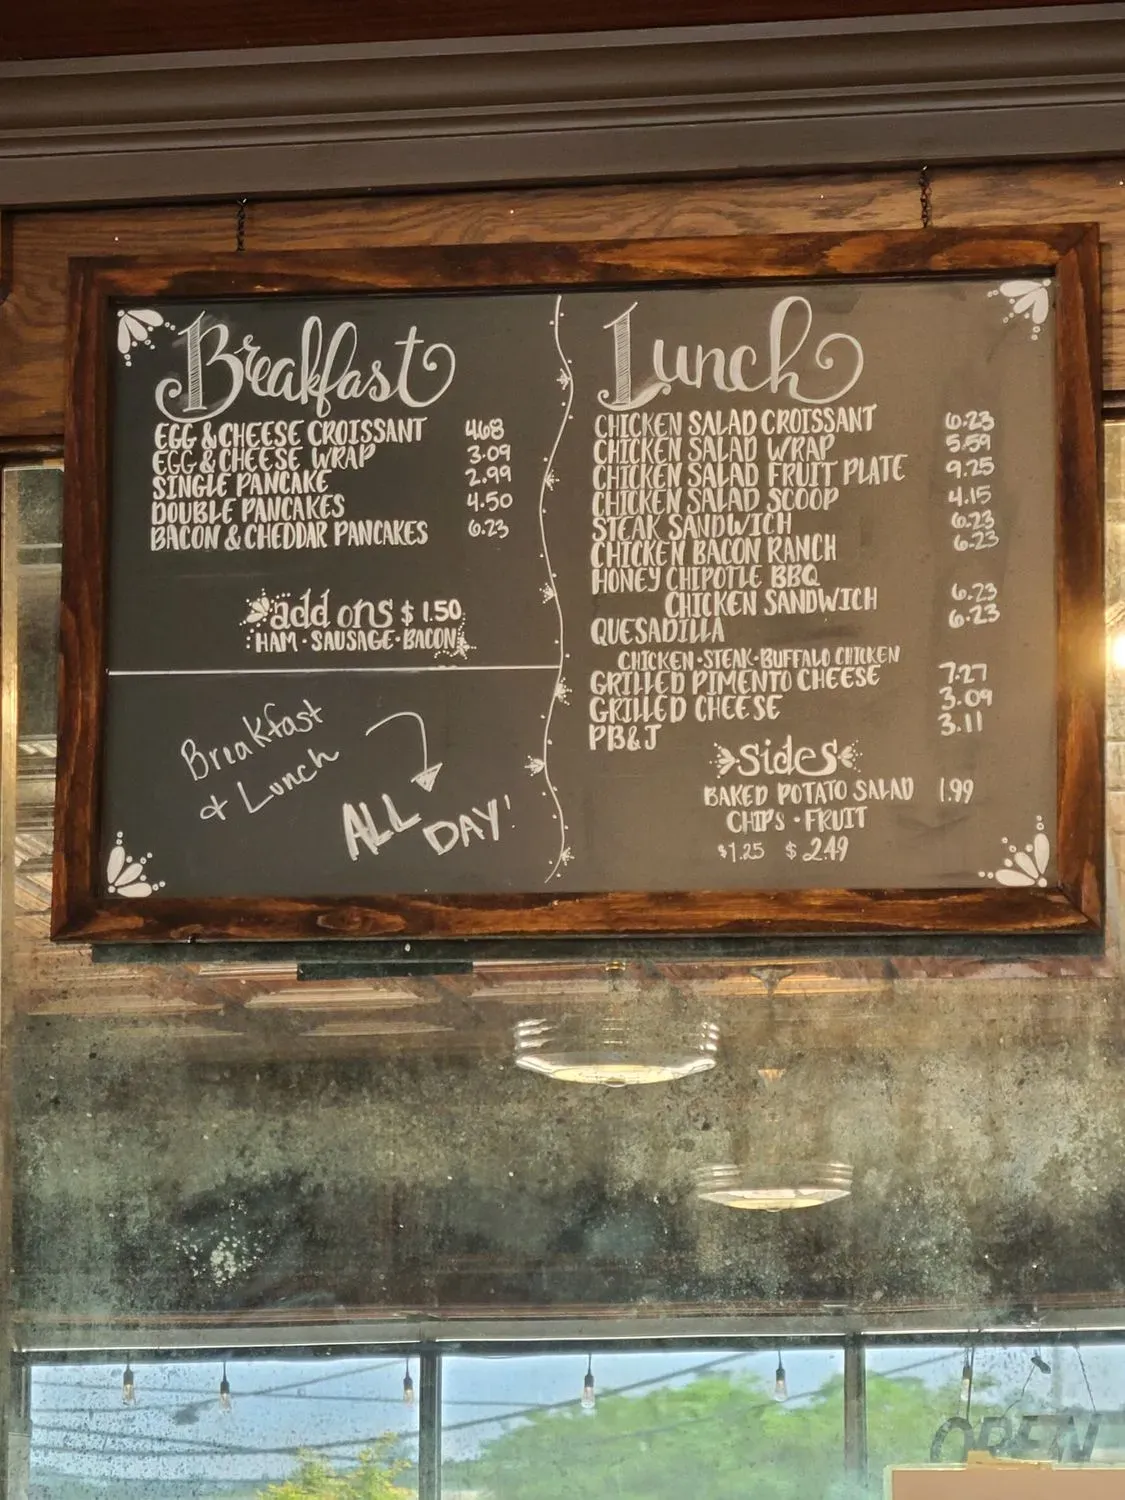 Breakfast
EGG & CHEESE CROISSANT 4.68
EGG & CHEESE WRAP 3.09
SINGLE PANCAKE 2.99
DOUBLE PANCAKES 4.50
BACON & CHEDDAR PANCAKES 6.23
add ons $1.50
HAM · SAUSAGE · BACON
Breakfast
& Lunch
ALL
DAY!
Lunch
CHICKEN SALAD CROISSANT 6.23
CHICKEN SALAD WRAP 5.59
CHICKEN SALAD FRUIT PLATE 9.25
CHICKEN SALAD SCOOP 4.15
STEAK SANDWICH 6.23
CHICKEN BACON RANCH 6.23
HONEY CHIPOTLE BBQ
CHICKEN SANDWICH 6.23
QUESADILLA 6.23
CHICKEN · STEAK · BUFFALO CHICKEN
GRILLED PIMENTO CHEESE 7.27
GRILLED CHEESE 3.09
PB&J 3.11
sides
BAKED POTATO SALAD 1.99
CHIPS · FRUIT
$1.25 $2.49
OPEN